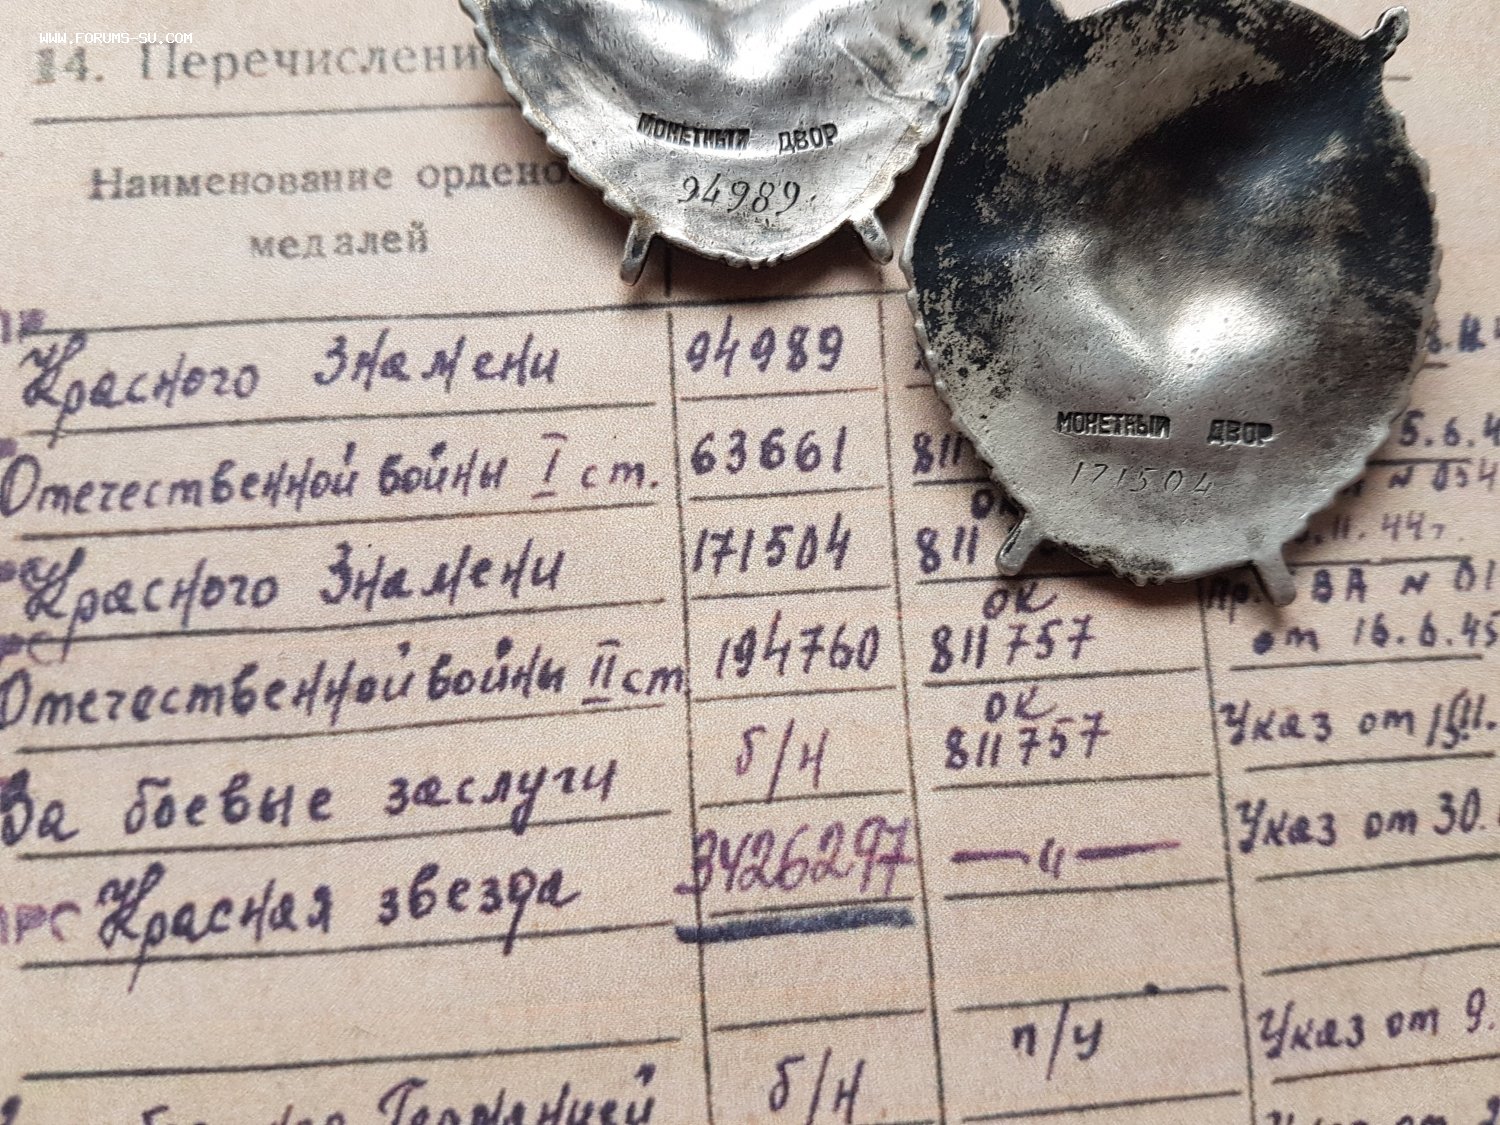 WWW.FORUMS-SU.COM
14. Перечислени
Наименование ордено
медалей
МОНЕТНЫЙ ДВОР
94989
МОНЕТНЫЙ ДВОР
171504
Красного Знамени 94989
Отечественной войны I ст. 63661 811 5.6.4
Красного Знамени 171504 811 .11.44г.
ОК ВА N 01
Отечественной войны II ст 194760 811757 от 16.6.45
ОК
За боевые заслуги б/н 811757 Указ от
Красная звезда 3426297 — " — Указ от 30.
п/у Указ от 9.
Германией б/н